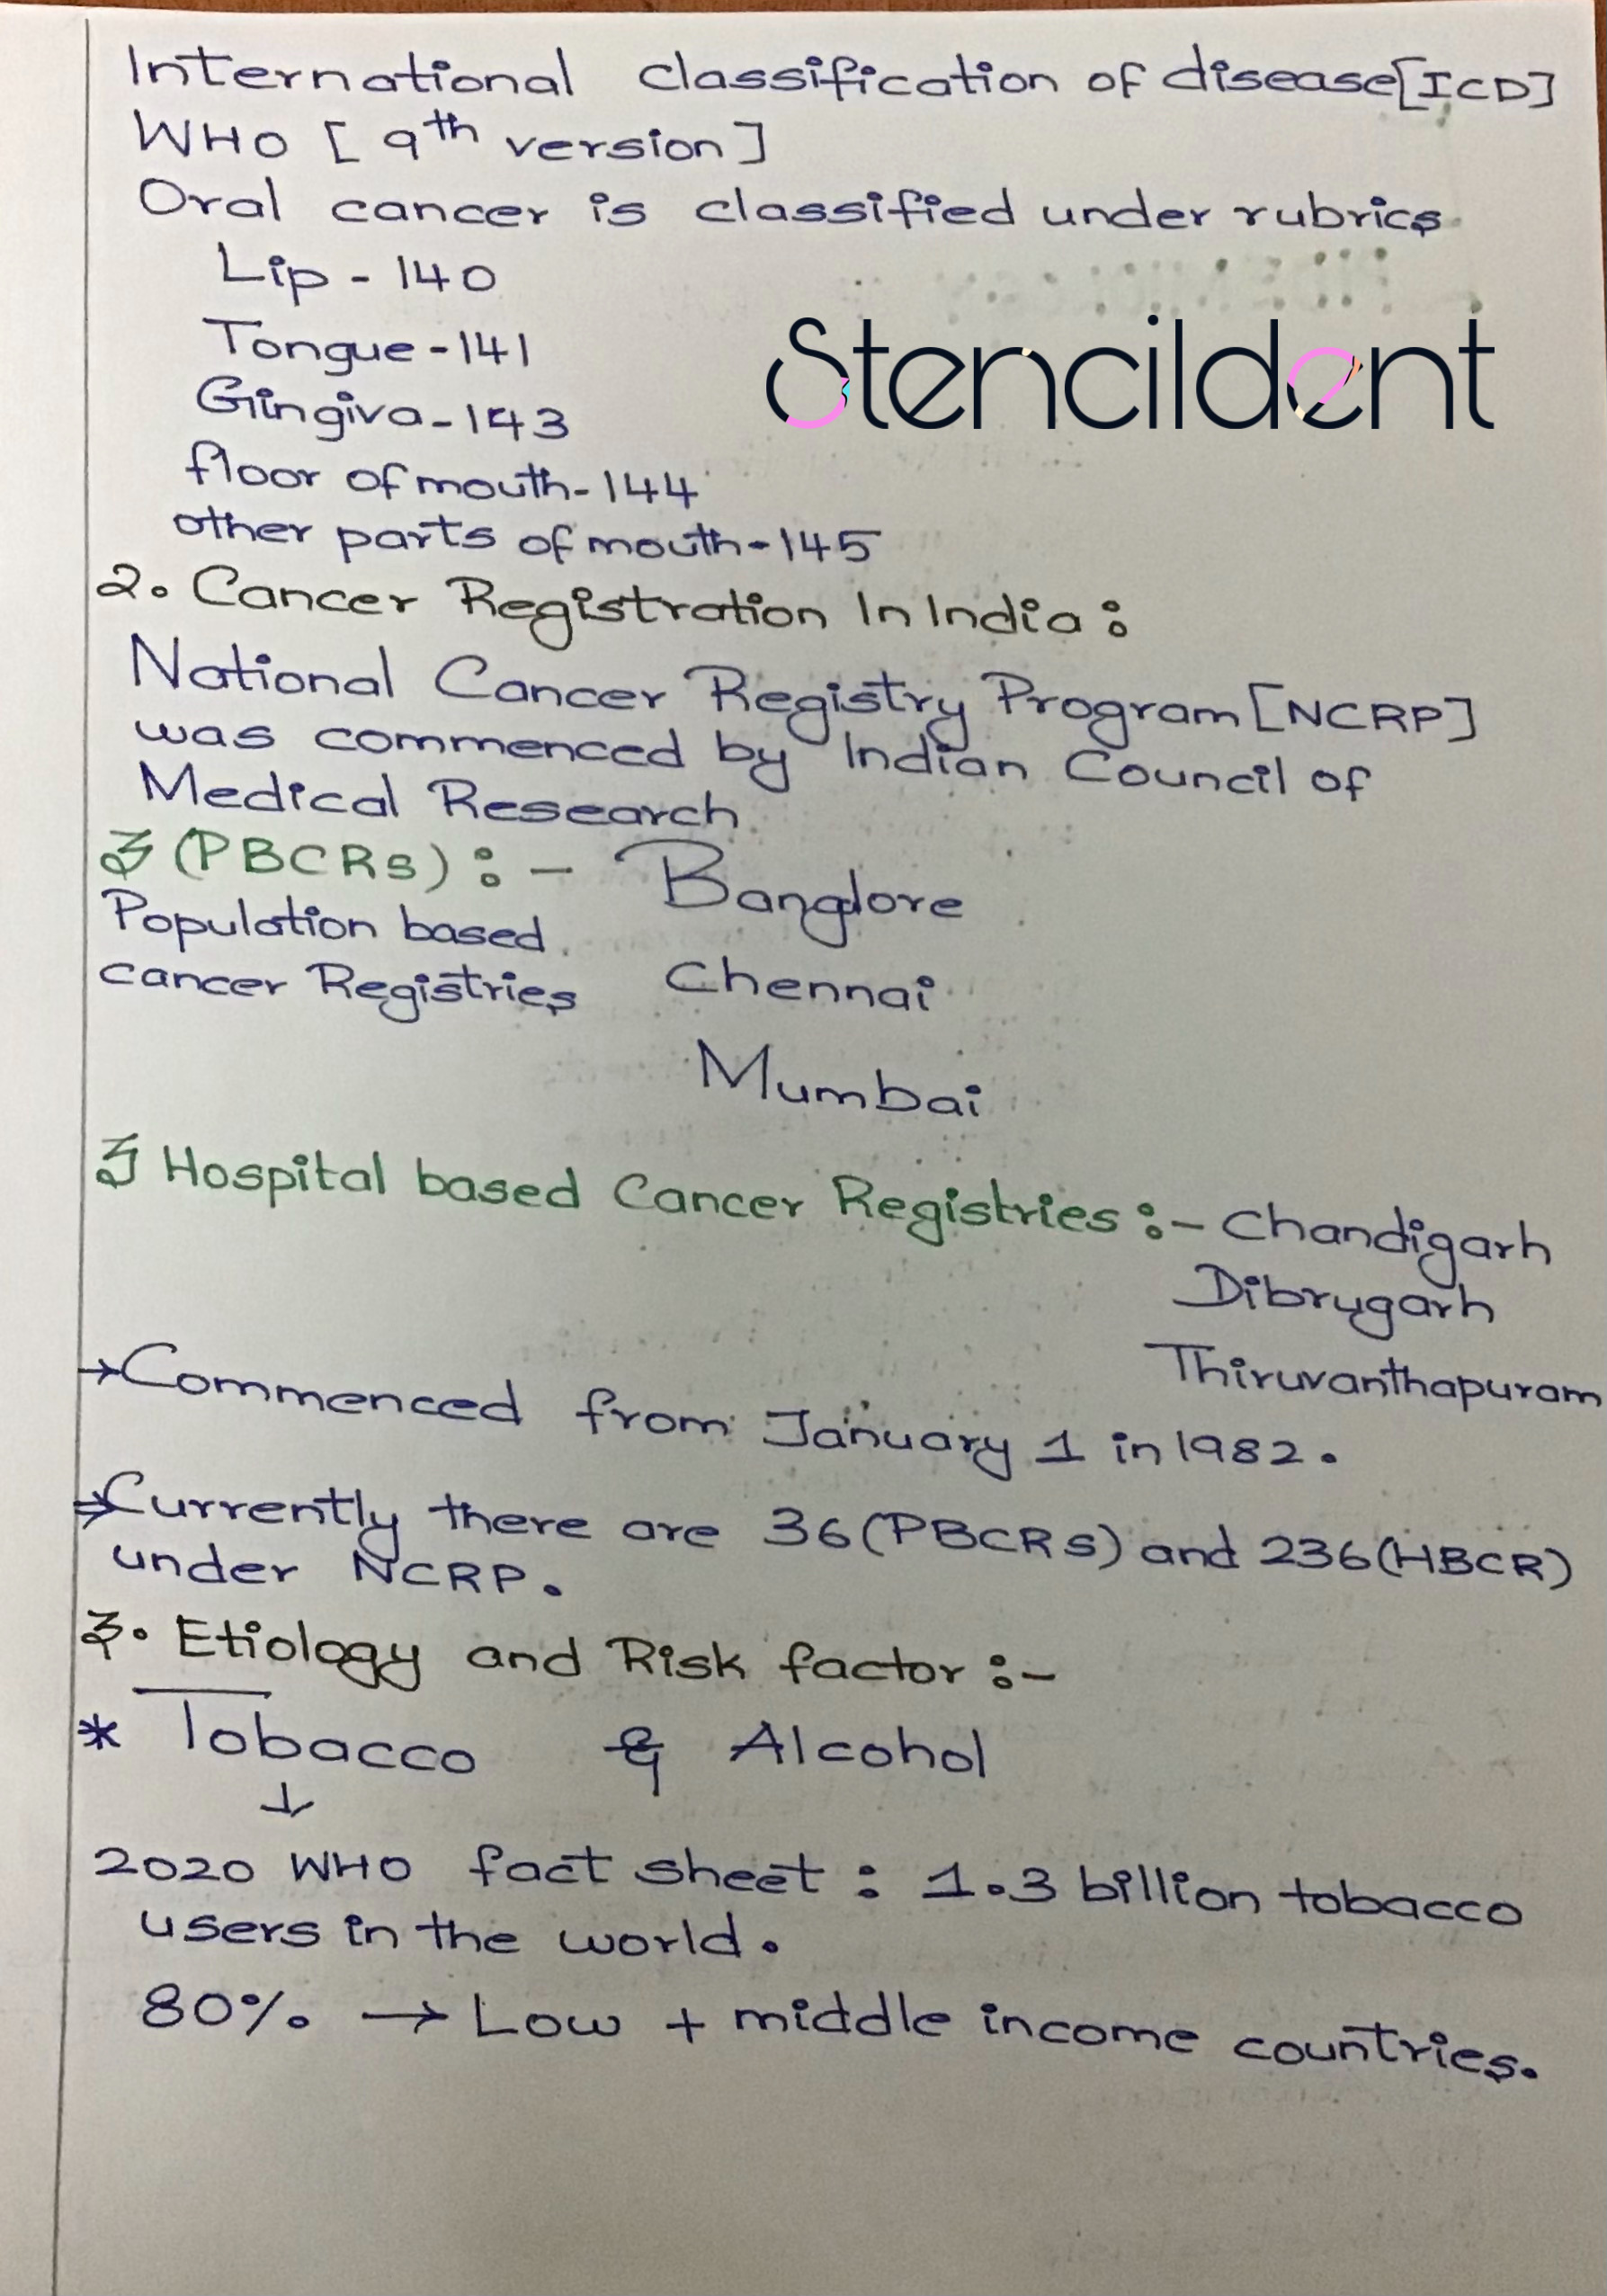 International classification of disease[ICD]
WHO [9th version]
Oral cancer is classified under rubrics
Lip - 140
Tongue - 141
Stencildent
Gingiva - 143
floor of mouth - 144
other parts of mouth - 145
2. Cancer Registration In India :
National Cancer Registry Program [NCRP]
was commenced by Indian Council of
Medical Research
(PBCRs) : - Banglore
Population based
cancer Registries Chennai
Mumbai
Hospital based Cancer Registries :- Chandigarh
Dibrygarh
Thiruvanthapuram
→ Commenced from January 1 in 1982.
⇒ Currently there are 36 (PBCRs) and 236 (HBCR)
under NCRP.
3. Etiology and Risk factor :-
* Tobacco & Alcohol
↓
2020 WHO fact sheet : 1.3 billion tobacco
users in the world.
80% → Low + middle income countries.